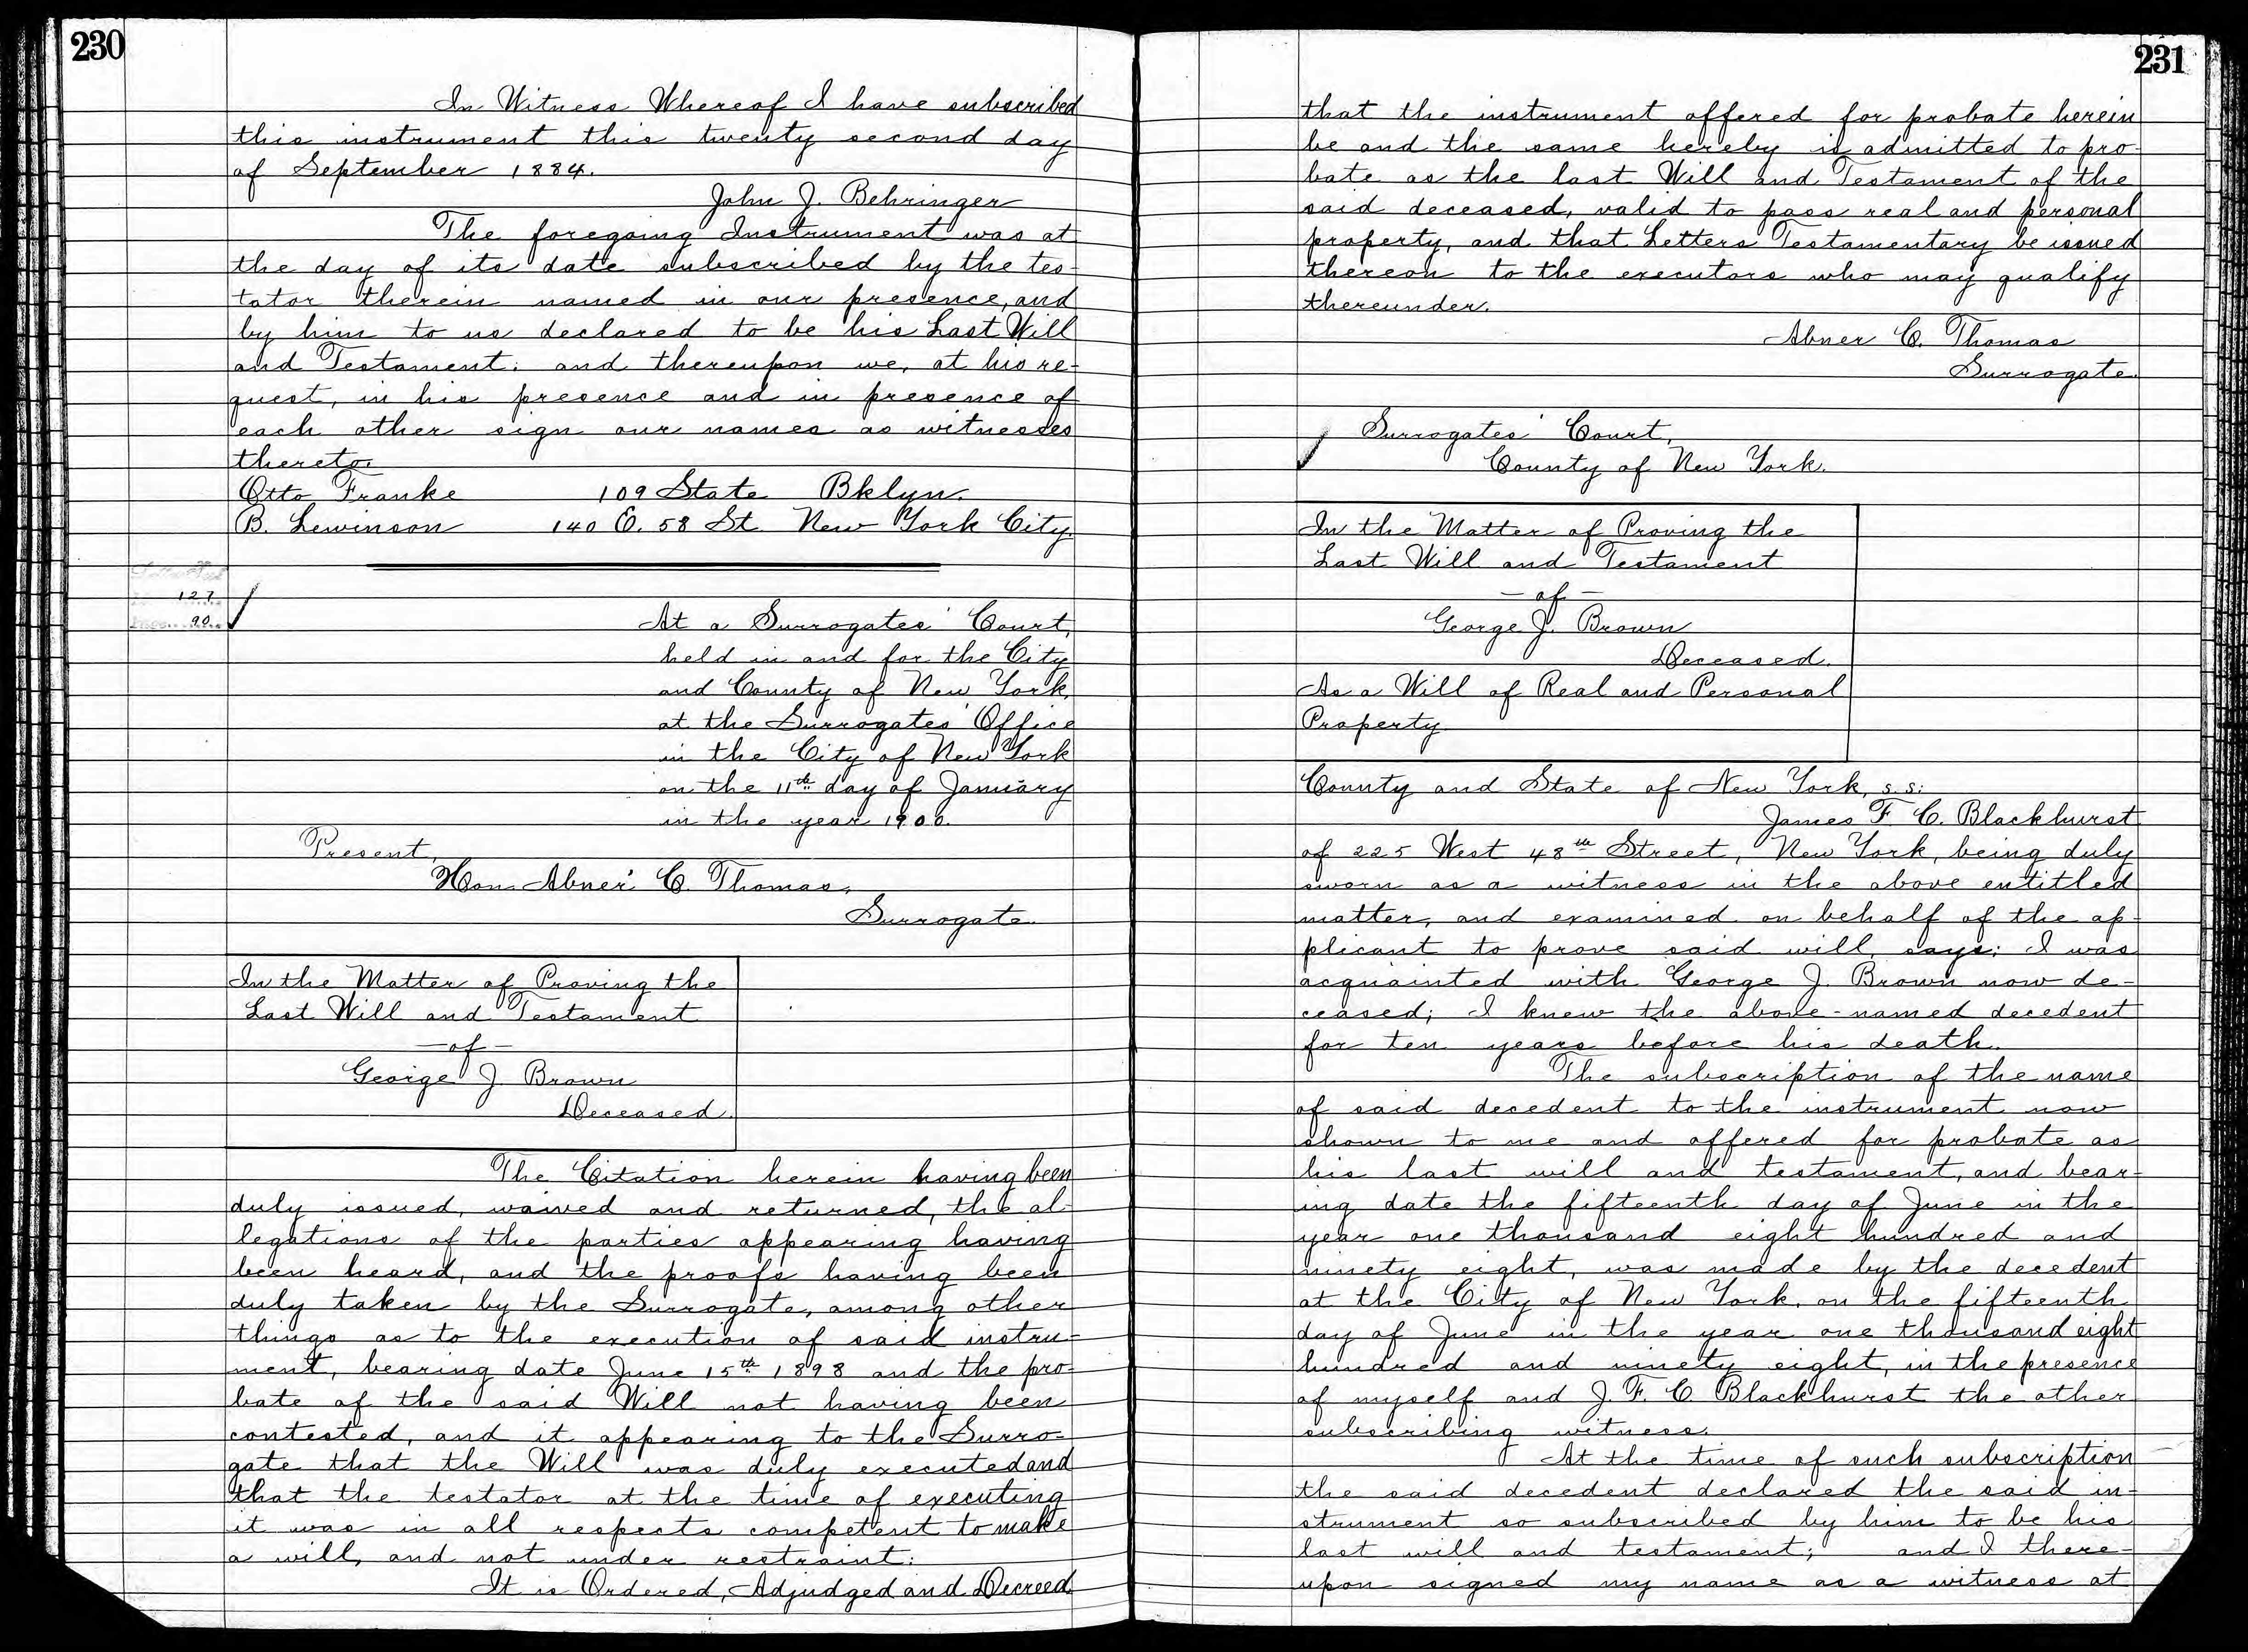 230
In Witness Whereof I have subscribed
this instrument this twenty second day
of September 1884.
John J. Behringer
The foregoing Instrument was at
the day of its date subscribed by the tes-
tator therein named in our presence, and
by him to us declared to be his Last Will
and Testament: and thereupon we, at his re-
quest, in his presence and in presence of
each other sign our names as witnesses
thereto.
Otto Franke 109 State Bklyn.
B. Lewinson 140 E. 58 St New York City.
127
90
At a Surrogates' Court,
held in and for the City
and County of New York,
at the Surrogates' Office
in the City of New York
on the 11th day of January
in the year 1900.
Present,
Hon. Abner C. Thomas,
Surrogate.
In the Matter of Proving the
Last Will and Testament
- of -
George J. Brown
Deceased.
The Citation herein having been
duly issued, waived and returned, the al-
legations of the parties appearing having
been heard, and the proofs having been
duly taken by the Surrogate, among other
things as to the execution of said instru-
ment, bearing date June 15th 1898 and the pro-
bate of the said Will not having been
contested, and it appearing to the Surro-
gate that the Will was duly executed and
that the testator at the time of executing
it was in all respects competent to make
a will, and not under restraint:
It is Ordered, Adjudged and Decreed
231
that the instrument offered for probate herein
be and the same hereby is admitted to pro-
bate as the last Will and Testament of the
said deceased, valid to pass real and personal
property, and that Letters Testamentary be issued
thereon to the executors who may qualify
thereunder.
Abner C. Thomas
Surrogate.
Surrogates' Court,
County of New York.
In the Matter of Proving the
Last Will and Testament
- of -
George J. Brown
Deceased.
As a Will of Real and Personal
Property
County and State of New York, s.s:
James F. C. Blackhurst
of 225 West 48th Street, New York, being duly
sworn as a witness in the above entitled
matter, and examined on behalf of the ap-
plicant to prove said will, says: I was
acquainted with George J. Brown now de-
ceased; I knew the above-named decedent
for ten years before his death.
The subscription of the name
of said decedent to the instrument now
shown to me and offered for probate as
his last will and testament, and bear-
ing date the fifteenth day of June in the
year one thousand eight hundred and
ninety eight, was made by the decedent
at the City of New York, on the fifteenth
day of June in the year one thousand eight
hundred and ninety eight, in the presence
of myself and J. F. C Blackhurst the other
subscribing witness.
At the time of such subscription
the said decedent declared the said in-
strument so subscribed by him to be his
last will and testament; and I there-
upon signed my name as a witness at